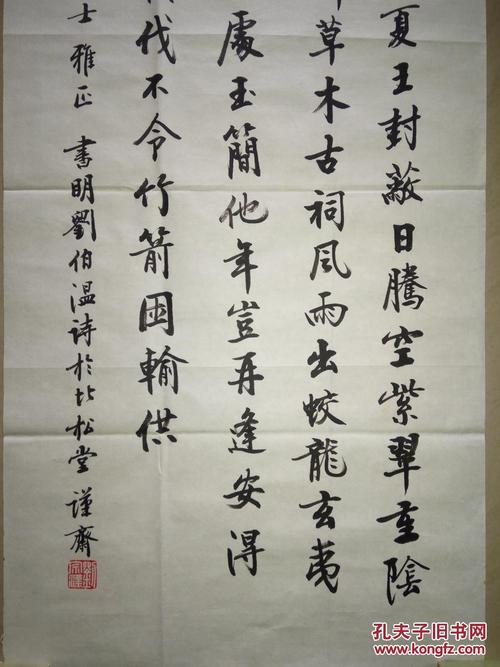 夏王封蔽日騰空紫翠重陰
草木古祠風雨出蛟龍玄夷
處玉簡他年豈再逢安得
代不令竹箭困輸供
士雅正 書明劉伯温詩於松堂 謹齋
孔夫子旧书网
www.kongfz.com